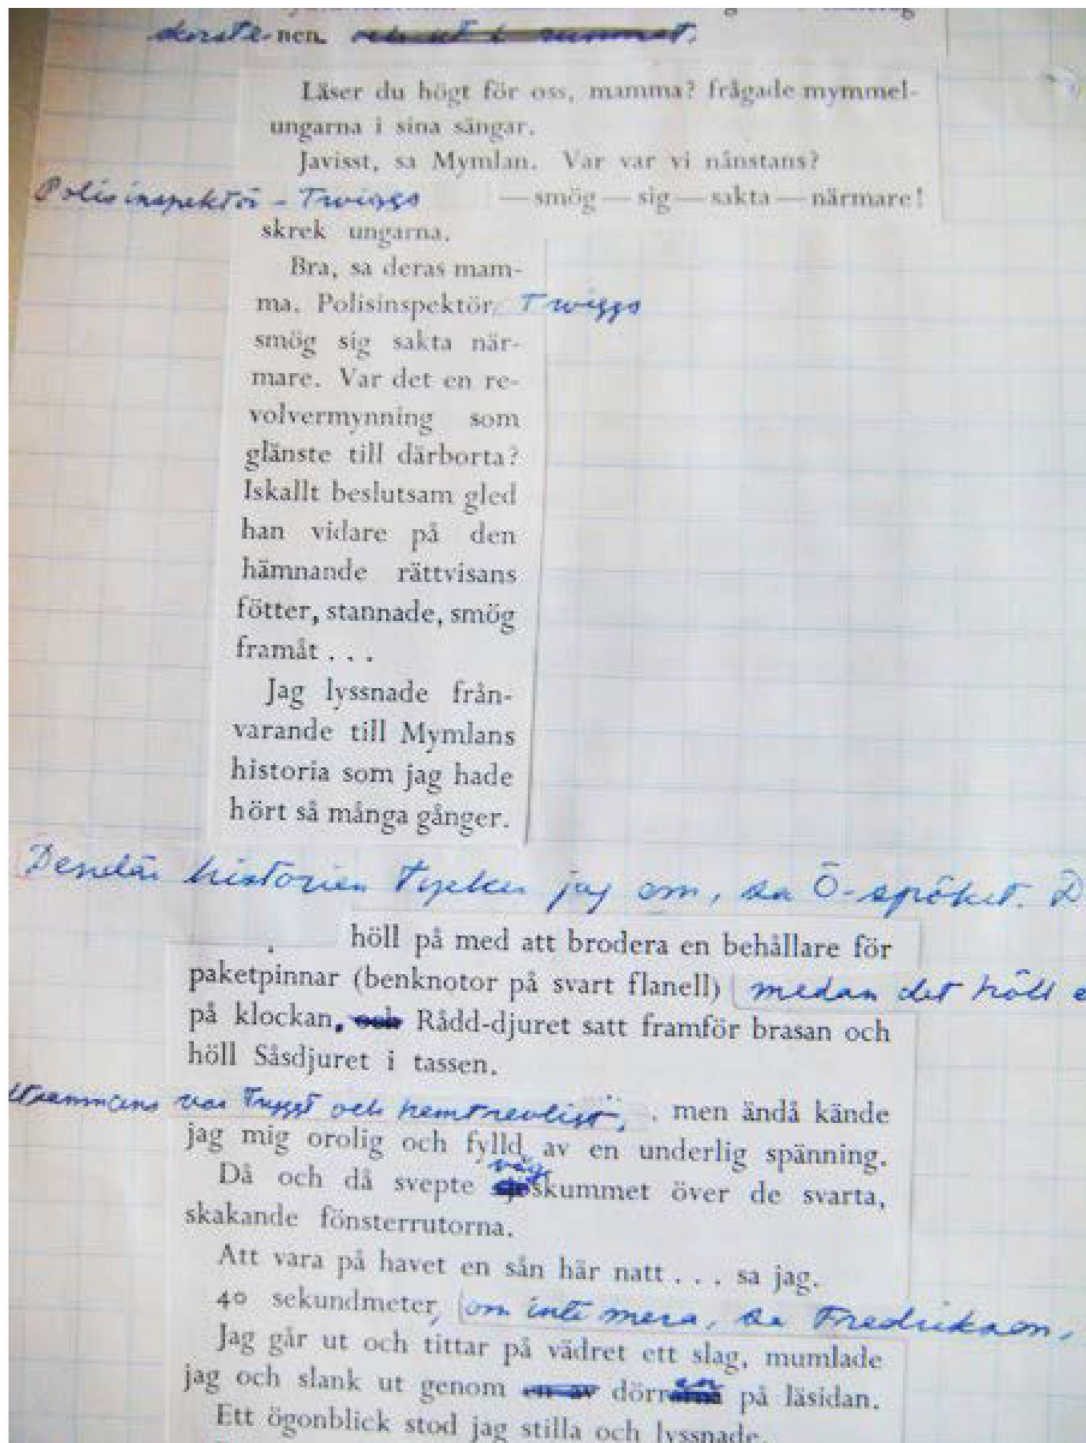 skorstenen. och ut i rummet.
Läser du högt för oss, mamma? frågade mymmel-
ungarna i sina sängar.
Javisst, sa Mymlan. Var var vi nånstans?
Polisinspektör - Twiggs — smög — sig — sakta — närmare!
skrek ungarna.
Bra, sa deras mam-
ma. Polisinspektör Twiggs
smög sig sakta när-
mare. Var det en re-
volvermynning som
glänste till därborta?
Iskallt beslutsam gled
han vidare på den
hämnande rättvisans
fötter, stannade, smög
framåt . . .
Jag lyssnade från-
varande till Mymlans
historia som jag hade
hört så många gånger.
Dendär historien tycker jag om, sa Ö-spöket. D
höll på med att brodera en behållare för
paketpinnar (benknotor på svart flanell) medan det höll
på klockan. och Rådd-djuret satt framför brasan och
höll Såsdjuret i tassen.
var tryggt och hemtrevligt, men ändå kände
jag mig orolig och fylld av en underlig spänning.
Då och då svepte vågskummet över de svarta,
skakande fönsterrutorna.
Att vara på havet en sån här natt . . . sa jag.
40 sekundmeter, om inte mera, sa Fredrikson.
Jag går ut och tittar på vädret ett slag, mumlade
jag och slank ut genom en av dörren på läsidan.
Ett ögonblick stod jag stilla och lyssnade.